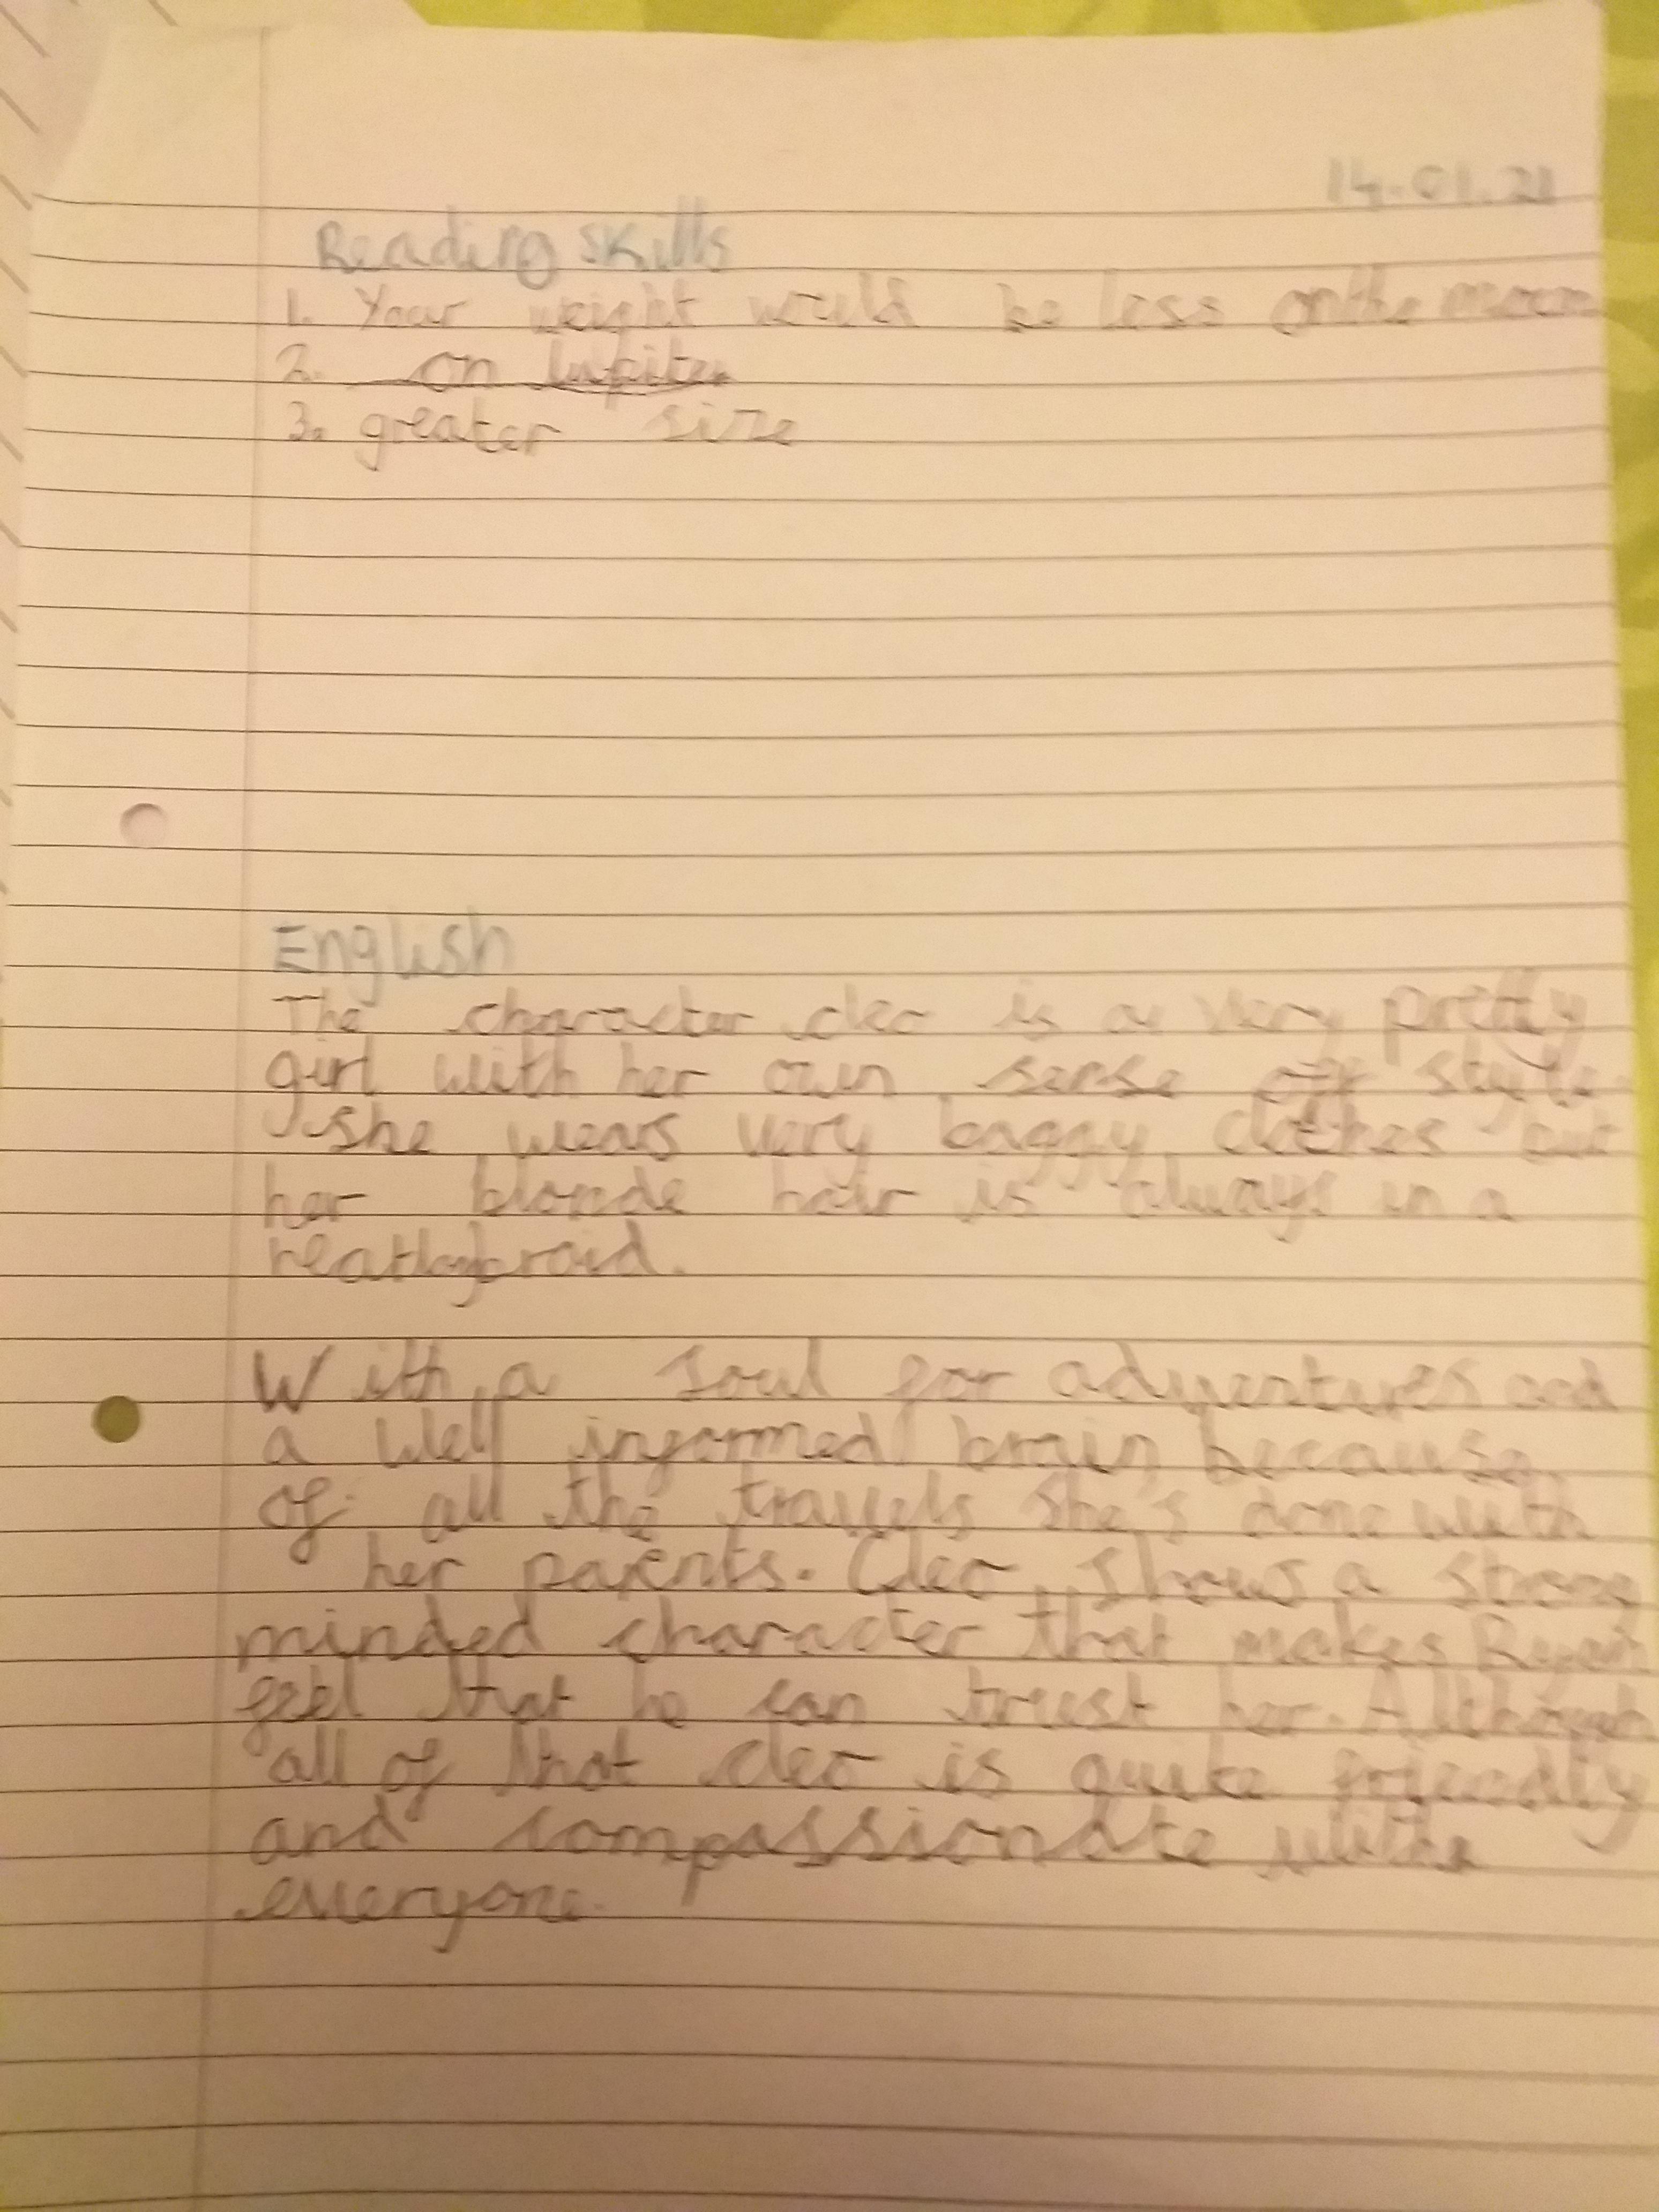 14.01.21
Reading skills
1. Your weight would be less on the moon
2. on Jupiter
3. greater size
English
The character cleo is a very pretty
girl with her own sense of style.
She wears very baggy clothes but
her blonde hair is always in a
neat braid.
With a soul for adventures and
a well informed brain because
of all the travels she's done with
her parents. Cleo shows a strong
minded character that makes Ryan
feel that he can trust her. Although
all of that cleo is quite friendly
and compassionate with
everyone.